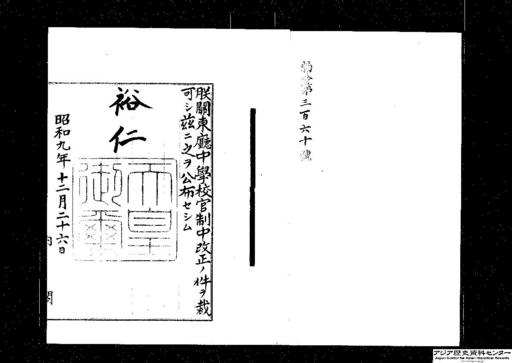 勅令第三百六十號
朕關東廳中學校官制中改正ノ件ヲ裁
可シ茲ニ之ヲ公布セシム
裕仁
天皇
御璽
昭和九年十二月二十六日
内閣
アジア歴史資料センター
Japan Center for Asian Historical Records